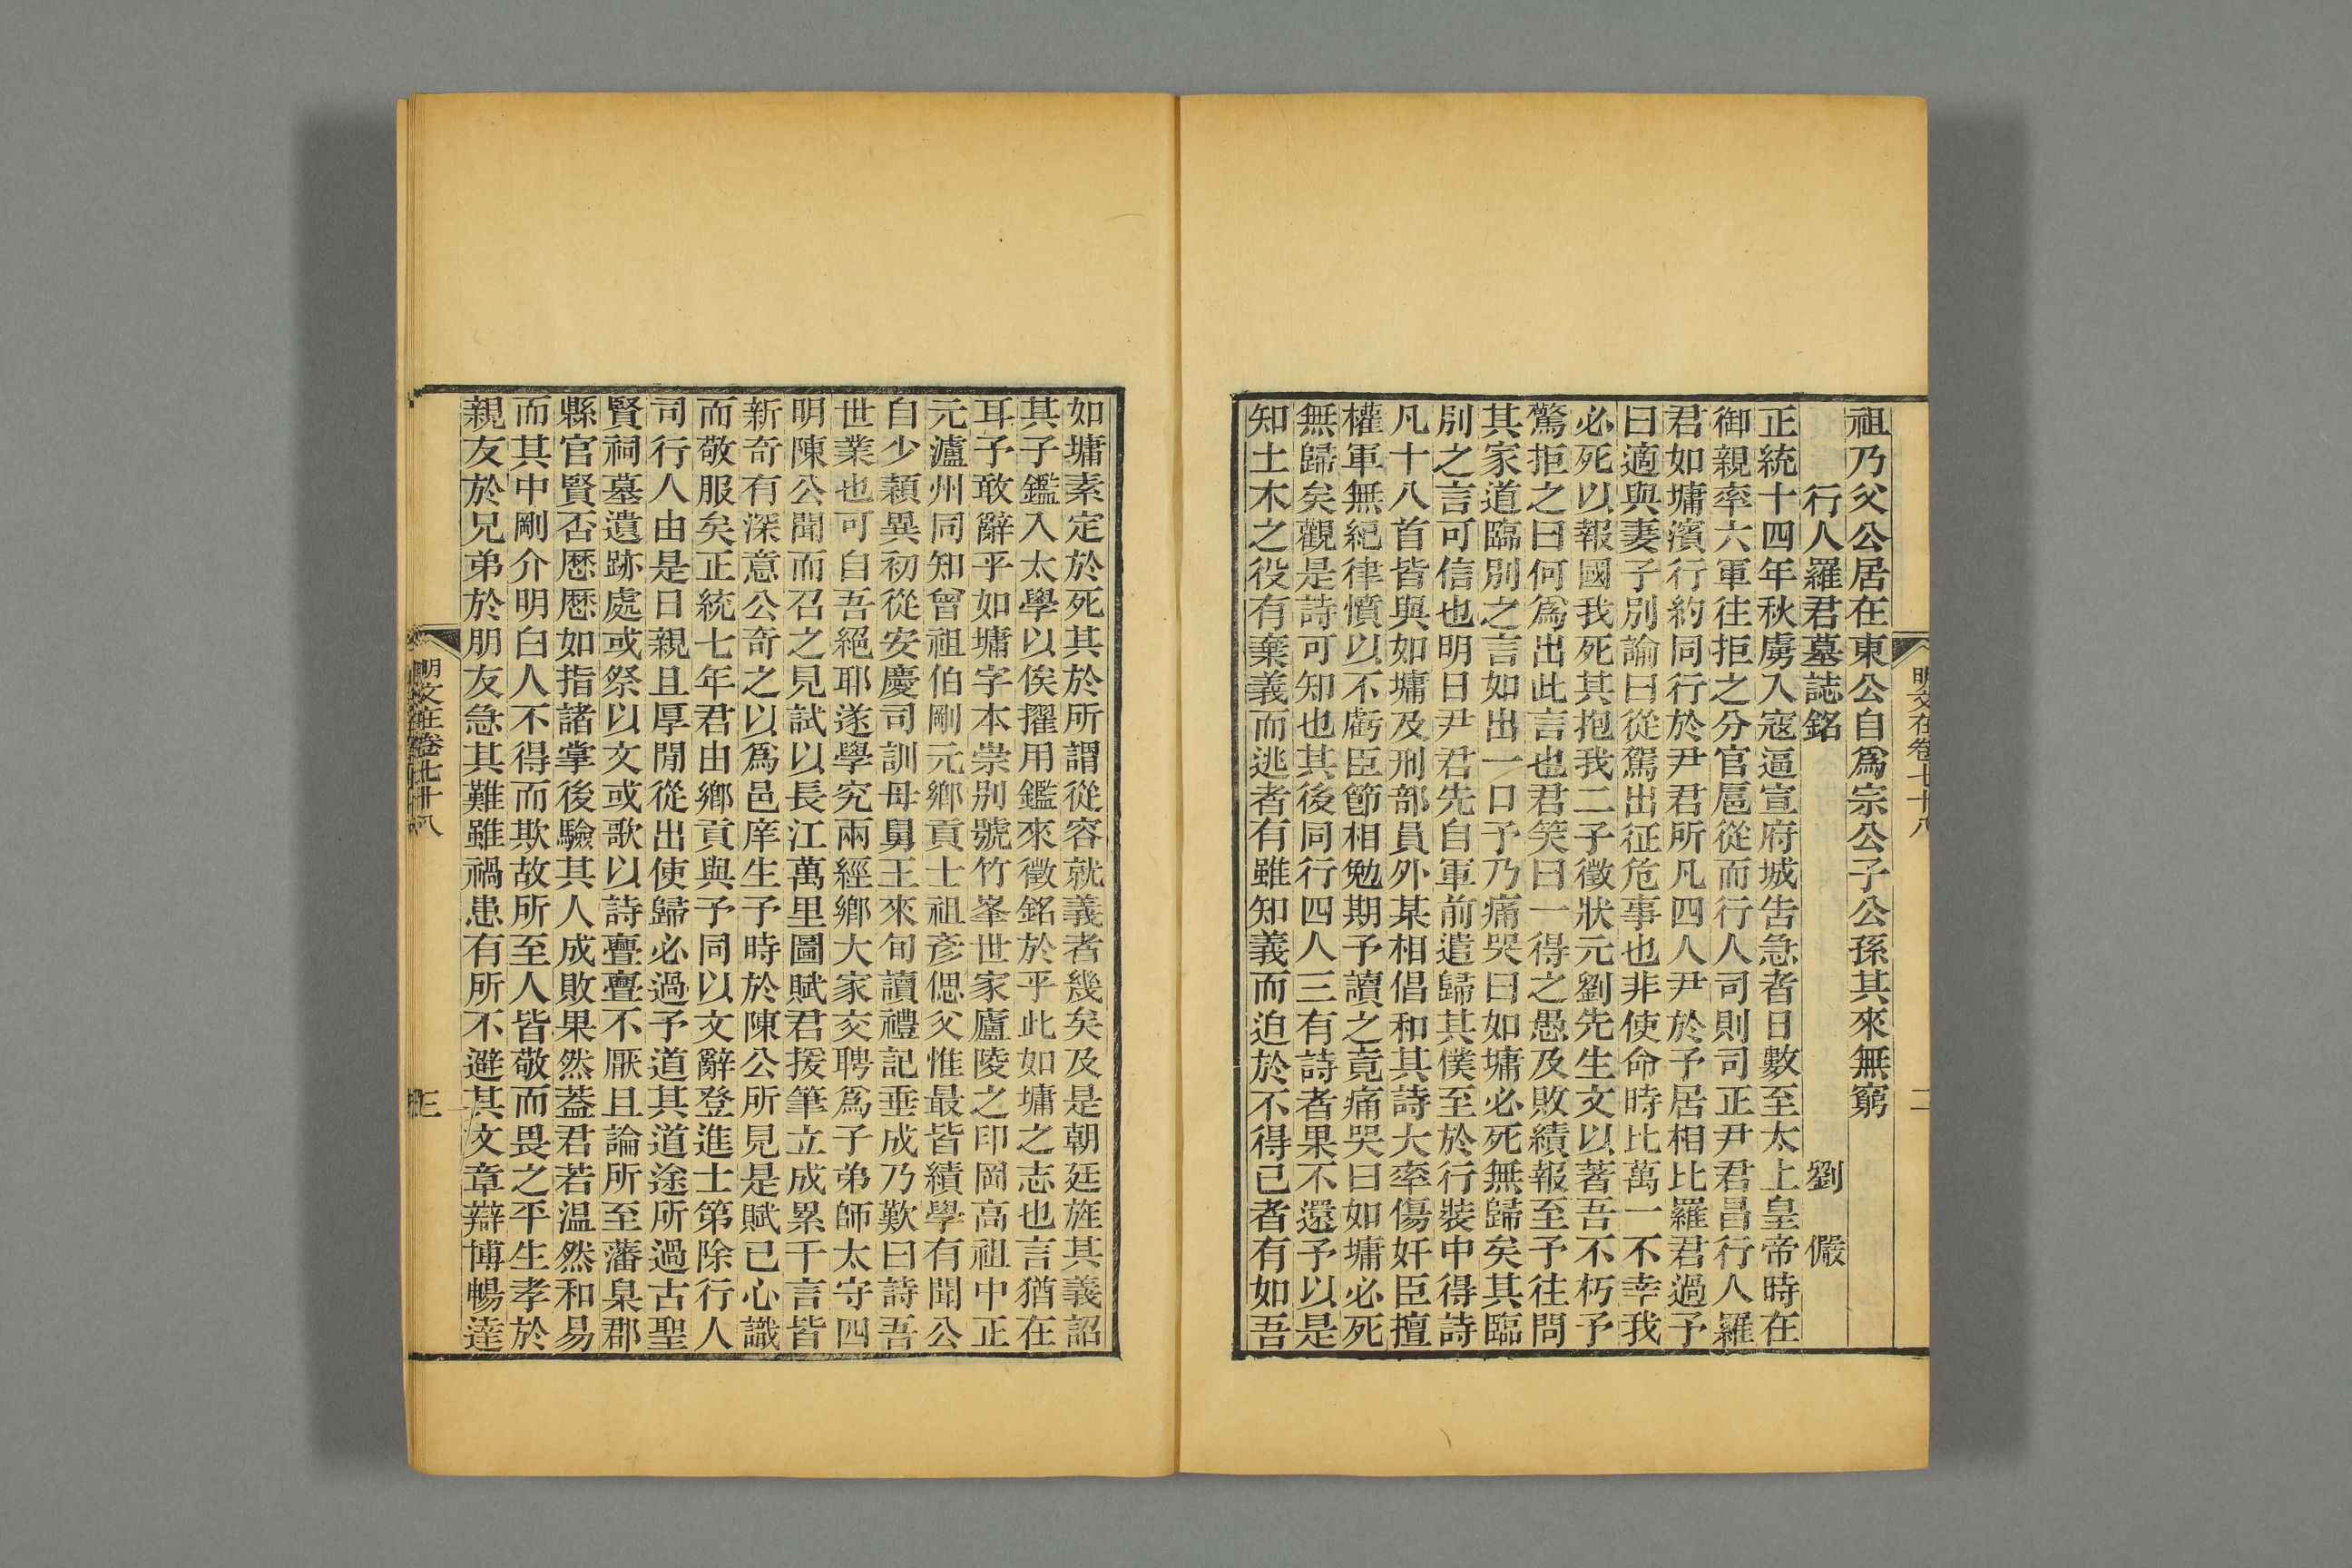 明文在卷七十八
二
祖乃父公居在東公自爲宗公子公孫其來無窮
行人羅君墓誌銘 劉儼
正統十四年秋虜入寇逼宣府城告急者日數至太上皇帝時在
御親率六軍往拒之分官扈從而行人司則司正尹君昌行人羅
君如墉濱行約同行於尹君所凡四人尹於予居相比羅君過予
曰適與妻子別論曰從駕出征危事也非使命時比萬一不幸我
必死以報國我死其抱我二子徵狀元劉先生文以著吾不朽予
驚拒之曰何爲出此言也君笑曰一得之愚及敗績報至予往問
其家道臨別之言如出一口予乃痛哭曰如墉必死無歸矣其臨
別之言可信也明日尹君先自軍前遣歸其僕至於行裝中得詩
凡十八首皆與如墉及刑部員外某相倡和其詩大率傷奸臣擅
權軍無紀律憤以不虧臣節相勉期予讀之竟痛哭曰如墉必死
無歸矣觀是詩可知也其後同行四人三有詩者果不還予以是
知土木之役有棄義而逃者有雖知義而迫於不得已者有如吾
如墉素定於死其於所謂從容就義者幾矣及是朝廷旌其義詔
其子鑑入太學以俟擢用鑑來徵銘於乎此如墉之志也言猶在
耳予敢辭乎如墉字本崇別號竹峯世家廬陵之印岡高祖中正
元瀘州同知曾祖伯剛元鄉貢士祖彥偲父惟最皆績學有聞公
自少穎異初從安慶司訓母舅王來旬讀禮記垂成乃歎曰詩吾
世業也可自吾絕耶遂學究兩經鄉大家交聘爲子弟師太守四
明陳公聞而召之見試以長江萬里圖賦君援筆立成累千言皆
新奇有深意公奇之以爲邑庠生予時於陳公所見是賦已心識
而敬服矣正統七年君由鄉貢與予同以文辭登進士第除行人
司行人由是日親且厚閒從出使歸必過予道其道途所過古聖
賢祠墓遺跡處或祭以文或歌以詩亹亹不厭且論所至藩臬郡
縣官賢否歷歷如指諸掌後驗其人成敗果然蓋君若温然和易
而其中剛介明白人不得而欺故所至人皆敬而畏之平生孝於
親友於兄弟於朋友急其難雖禍患有所不避其文章辯博暢達
明文在卷七十八
三